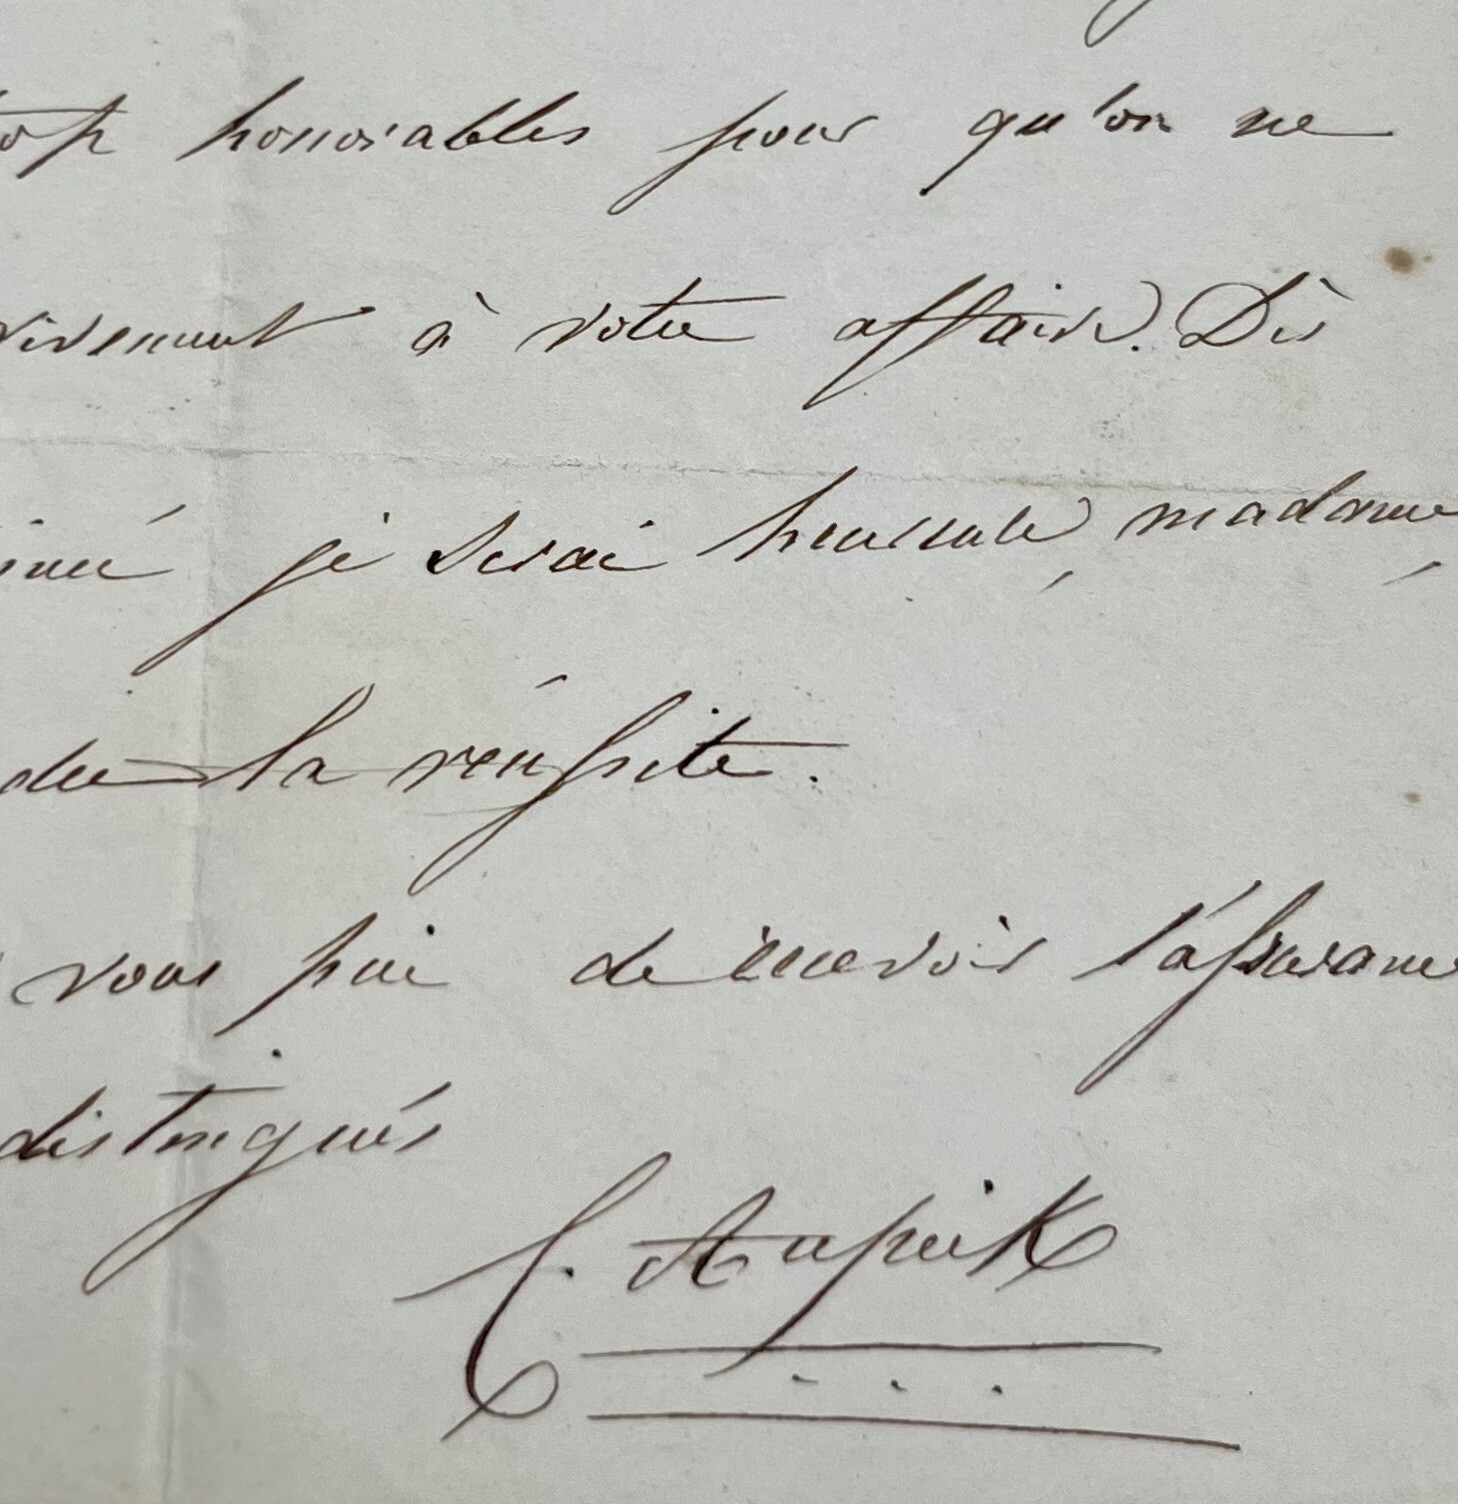 trop honorables pour qu'on ne
vivement à votre affaire. Dès
je serai heureuse, madame,
de la réussite.
vous prie de recevoir l'assurance
distingués
C. Aupick